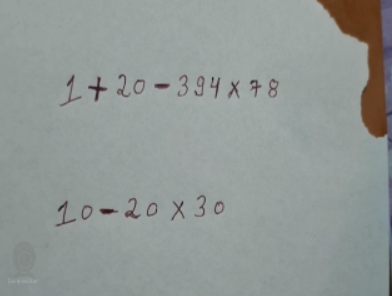 1+20-394×78
10-20×30